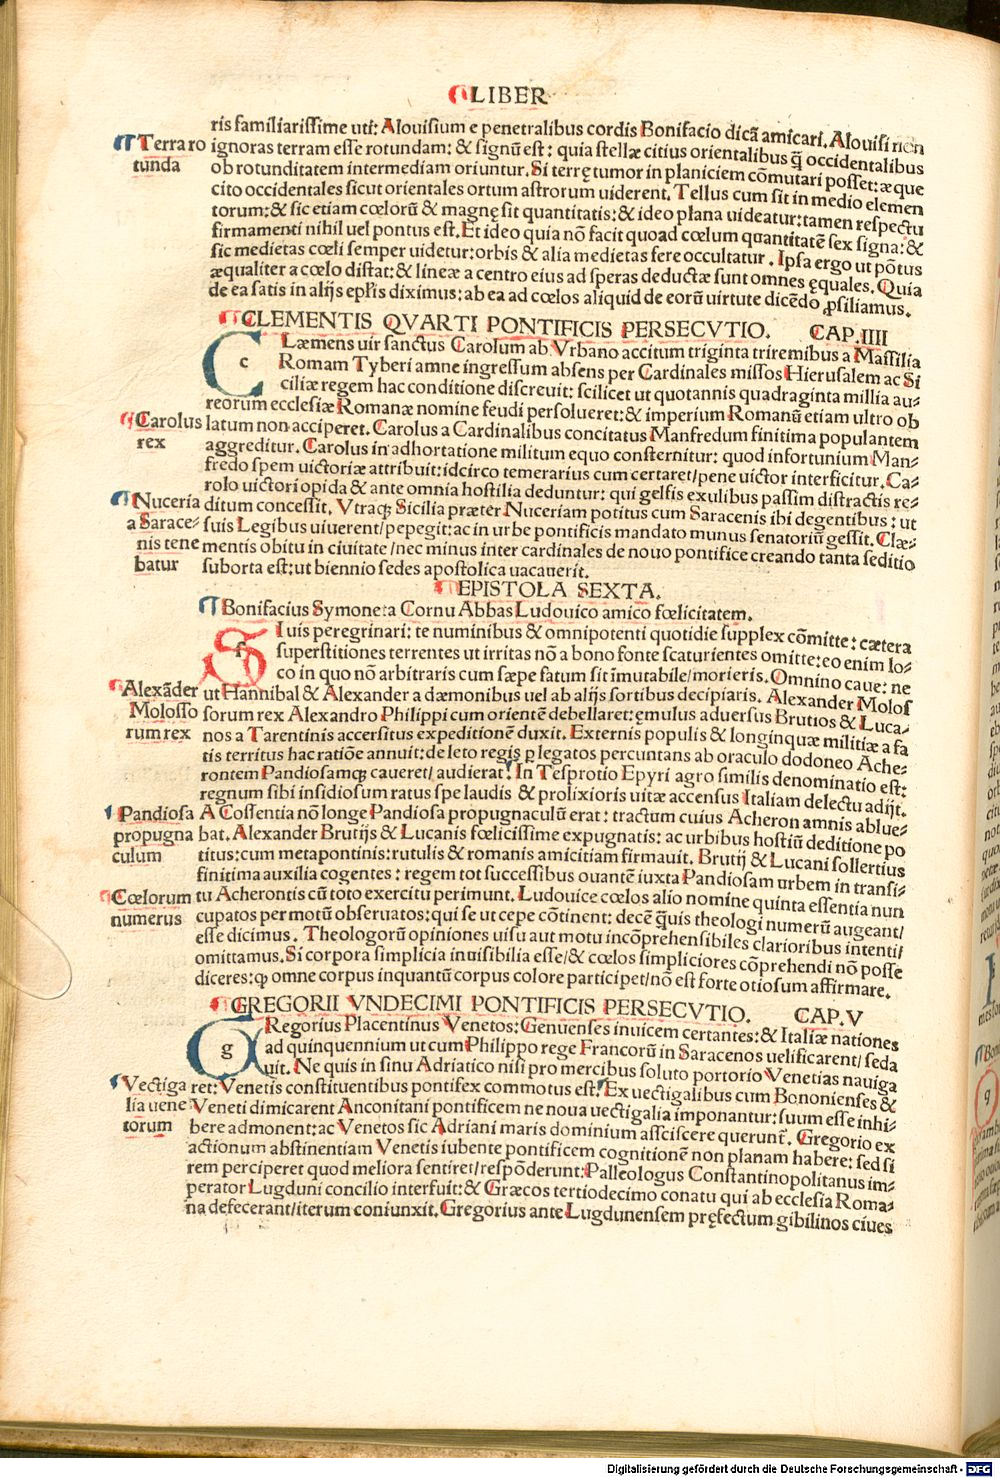 LIBER
ris familiarissime uti: Alouisium e penetralibus cordis Bonifacio dicā amicari. Alouisi
Terra ro
tunda
ignoras terram esse rotundam: & signū est: quia stellæ citius orientalibus q̄ occidentalibus
ob rotunditatem intermediam oriuntur. Si terrę tumor in planiciem cōmutari posset: æque
cito occidentales sicut orientales ortum astrorum uiderent. Tellus cum sit in medio elemen
torum: & sic etiam cœlorū & magnę sit quantitatis: & ideo plana uideatur: tamen respectu
firmamenti nihil uel pontus est. Et ideo quia nō facit quoad cœlum quantitatē sex signa: &
sic medietas cœli semper uidetur: orbis & alia medietas fere occultatur. Ipsa ergo ut pōtus
æqualiter a cœlo distat: & lineæ a centro eius ad speras deductæ sunt omnes ęquales. Quia
de ea satis in alijs epl̄is diximus: ab ea ad cœlos aliquid de eorū uirtute dicēdo ꝓsiliamus.
CLEMENTIS QVARTI PONTIFICIS PERSECVTIO. CAP.IIII
c
Læmens uir sanctus Carolum ab Vrbano accitum triginta triremibus a Massilia
Romam Tyberi amne ingressum absens per Cardinales missos Hierusalem ac Si
ciliæ regem hac conditione discreuit: scilicet ut quotannis quadraginta millia au-
reorum ecclesiæ Romanæ nomine feudi persolueret: & imperium Romanū etiam ultro ob
Carolus
rex
latum non acciperet. Carolus a Cardinalibus concitatus Manfredum finitima populantem
aggreditur. Carolus in adhortatione militum equo consternitur: quod infortunium Man-
fredo spem uictoriæ attribuit: idcirco temerarius cum certaret/pene uictor interficitur. Ca-
rolo uictori opida & ante omnia hostilia deduntur: qui gelfis exulibus passim distractis re-
Nuceria
a Sarace-
nis tene
batur
ditum concessit. Vtraq; Sicilia præter Nuceriam potitus cum Saracenis ibi degentibus: ut
suis Legibus uiuerent/pepegit: ac in urbe pontificis mandato munus senatoriū gessit. Clæ-
mentis obitu in ciuitate/nec minus inter cardinales de nouo pontifice creando tanta seditio
suborta est: ut biennio sedes apostolica uacauerit.
EPISTOLA SEXTA.
Bonifacius Symoneta Cornu Abbas Ludouico amico fœlicitatem.
s
I uis peregrinari: te numinibus & omnipotenti quotidie supplex cōmitte: cætera
superstitiones terrentes ut irritas nō a bono fonte scaturientes omitte: eo enim lo-
co in quo nō arbitraris cum sæpe fatum sit īmutabile/morieris. Omnino caue: ne
Alexāder
Molosso
rum rex
ut Hannibal & Alexander a dæmonibus uel ab alijs sortibus decipiaris. Alexander Molos
sorum rex Alexandro Philippi cum orientē debellaret: ęmulus aduersus Brutios & Luca-
nos a Tarentinis accersitus expeditionē duxit. Externis populis & longinquæ militiæ a fa
tis territus hac ratiōe annuit: de leto regis ꝑ legatos percuntans ab oraculo dodoneo Ache-
rontem Pandiosamq; caueret/audierat. In Tesprotio Epyri agro similis denominatio est:
regnum sibi insidiosum ratus spe laudis & prolixioris uitæ accensus Italiam delectu adijt.
Pandiosa
propugna
culum
A Cossentia nō longe Pandiosa propugnaculū erat: tractum cuius Acheron amnis ablue-
bat. Alexander Brutijs & Lucanis fœlicissime expugnatis: ac urbibus hostiū deditione po
titus: cum metapontinis: rutulis & romanis amicitiam firmauit. Brutij & Lucani sollertius
finitima auxilia cogentes: regem tot successibus ouantē iuxta Pandiosam urbem in transi-
Cœlorum
numerus
tu Acherontis cū toto exercitu perimunt. Ludouice cœlos alio nomine quinta essentia nun
cupatos per motū obseruatos: qui se ut cepe cōtinent: decē q̄uis theologi numerū augeant/
esse dicimus. Theologorū opiniones uisu aut motu incōprehensibiles clarioribus intenti/
omittamus. Si corpora simplicia inuisibilia esse/& cœlos simpliciores cōprehendi nō posse
diceres: ꝙ omne corpus inquantū corpus colore participet/nō est forte otiosum affirmare.
GREGORII VNDECIMI PONTIFICIS PERSECVTIO. CAP.V
g
Regorius Placentinus Venetos: Genuenses inuicem certantes: & Italiæ nationes
ad quinquennium ut cum Philippo rege Francorū in Saracenos uelificarent/seda
uit. Ne quis in sinu Adriatico nisi pro mercibus soluto portorio Venetias nauiga
Vectiga
lia uene
torum
ret: Venetis constituentibus pontifex commotus est. Ex uectigalibus cum Bononienses &
Veneti dimicarent Anconitani pontificem ne noua uectigalia imponantur: suum esse inhi-
bere admonent: ac Venetos sic Adriani maris dominium assciscere querunt̄. Gregorio ex
actionum abstinentiam Venetis iubente pontificem cognitionē non planam habere: sed si
rem perciperet quod meliora sentiret/respōderunt: Palleologus Constantinopolitanus im-
perator Lugduni concilio interfuit: & Græcos tertiodecimo conatu qui ab ecclesia Roma-
na defecerant/iterum coniunxit. Gregorius ante Lugdunensem pręfectum gibilinos ciues
Digitalisierung gefördert durch die Deutsche Forschungsgemeinschaft - DFG